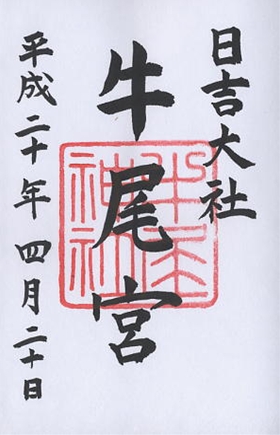 日吉大社
牛尾宮
平成二十年四月二十日